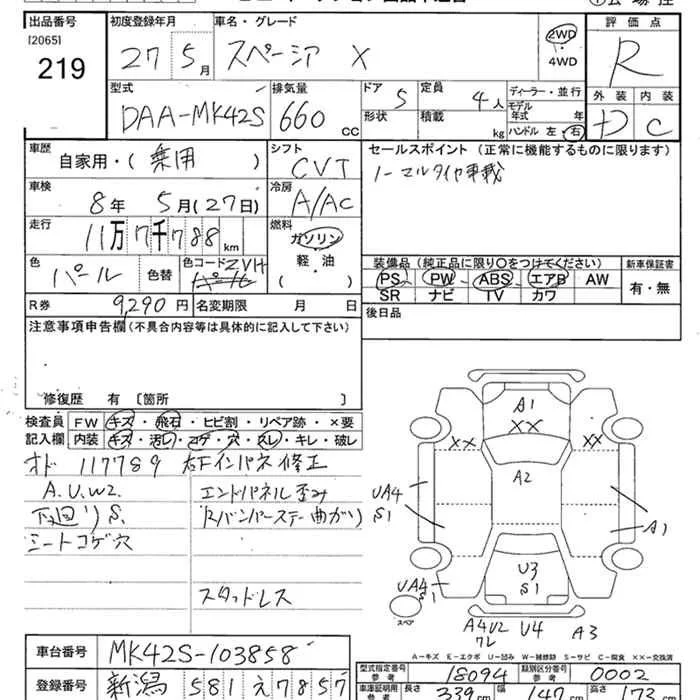 出品番号 初度登録年月 車名・グレード 評価点
[2065] 219
27年 5月 スペーシア X 2WD・4WD R
型式 排気量 ドア 定員 ディーラー・並行 外装 内装
DAA-MK42S 660cc 5 4人 モデル年式 年 D C
形状 積載 kg ハンドル 左・右
車歴 シフト セールスポイント (正常に機能するものに限ります)
自家用・(乗用) CVT ノーマルタイヤ車載
車検 冷房
8年 5月(27日) A/AC
走行 燃料
11万7千788km ガソリン 軽・油 ( )
装備品 (純正品に限り○をつけてください) 新車保証書
色 パール 色替 色コード ZVH
PS PW ABS エアB AW 有・無
SR ナビ TV カワ
R券 9,290円 名変期限 月 日 後日品
注意事項申告欄 (不具合内容等は具体的に記入して下さい)
修復歴 有 [箇所 ]
検査員 FW キズ・飛石・ヒビ割・リペア跡・×要
記入欄 内装 キズ・汚レ・コゲ・穴・スレ・キレ・破レ
オド 117789 右Fインパネ修正
A.U.W2. エンドパネル歪み
下廻りS. Rバンパーステー曲がり
シートコゲ穴
スタッドレス
A1
XX XX XX
A2
UA4 S1 A1
U3 S1
UA4 S1
スペア
A4U2 ワレ U4 A3
A=キズ E=エクボ U=凹み W=補修跡 S=サビ C=腐食 ××=交換済
車台番号 MK42S-103858
型式指定番号 参考 18094 類別区分番号 参考 0002
登録番号 新潟 581 え 7857
車庫証明用 参考 長さ 339cm 幅 147cm 高さ 173cm